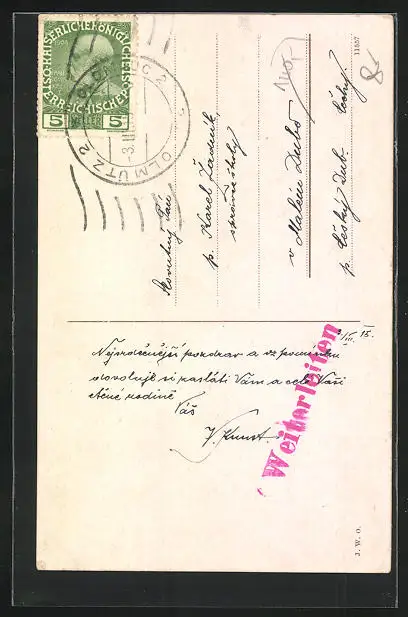 KAISERLICHE KÖNIGLICHE ÖSTERREICHISCHE POST
1908
5 HELLER 5
OLOMOUC 2
OLMÜTZ 2
3.III
11557
Slovutný Pán
p. Karel Zadník
správce školy
v Malém Dubě
p. Český Dub. Čechy.
140,-
8-
III. 15.
Nejsrdečnější pozdrav a vzpomínku
dovoluji si zaslati Vám a celé Vaší
ctěné rodině
Váš
V. Kunst.
Weiterleiten
J. W. O.